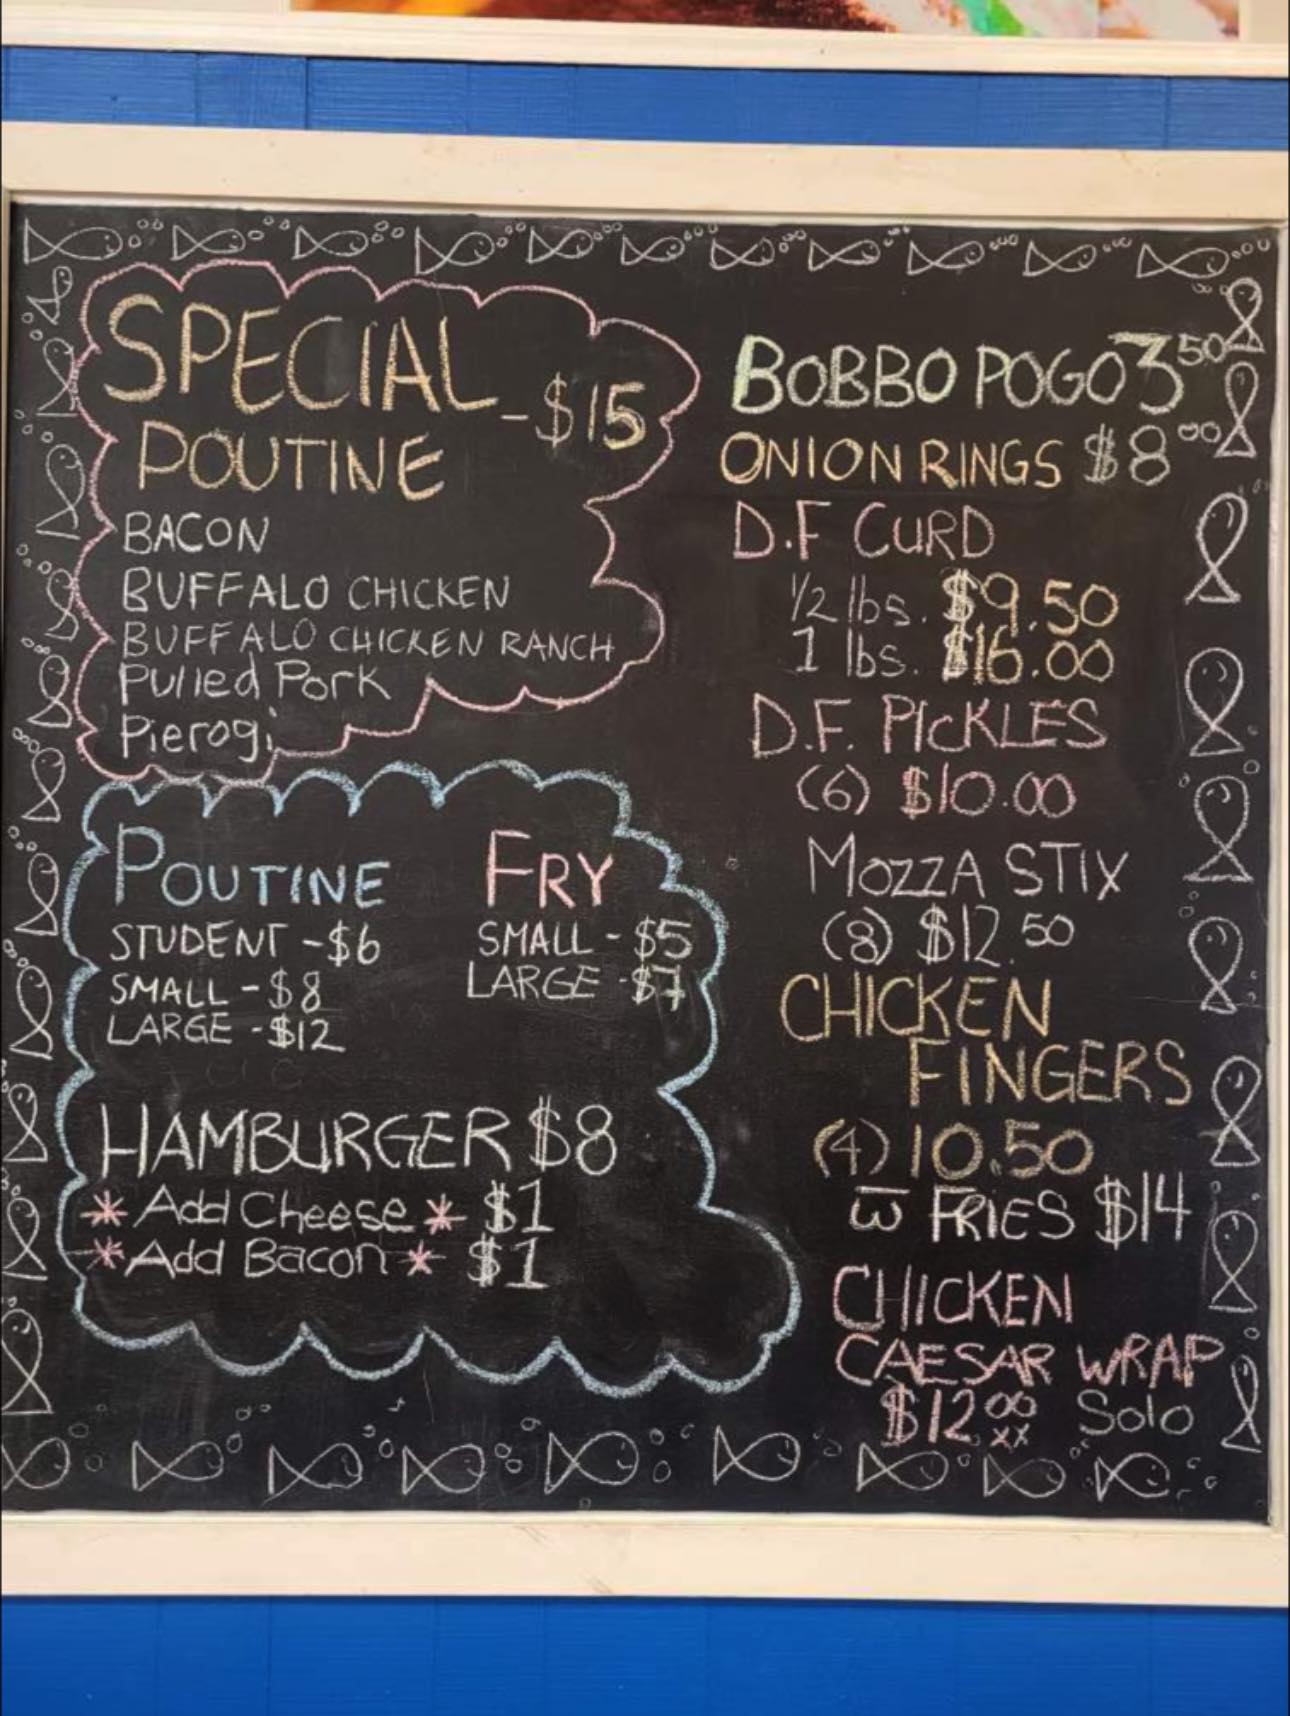 SPECIAL
POUTINE - $15
BACON
BUFFALO CHICKEN
BUFFALO CHICKEN RANCH
Pulled Pork
Pierogi
POUTINE
STUDENT - $6
SMALL - $8
LARGE - $12
FRY
SMALL - $5
LARGE - $7
HAMBURGER $8
* Add Cheese * $1
* Add Bacon * $1
BOBBO POGO 3 50
ONION RINGS $8 00
D.F CURD
1/2 lbs. $9.50
1 lbs. $16.00
D.F. PICKLES
(6) $10.00
MOZZA STIX
(8) $12.50
CHICKEN
FINGERS
(4) 10.50
w̅ FRIES $14
CHICKEN
CAESAR WRAP
$12 00 xx Solo